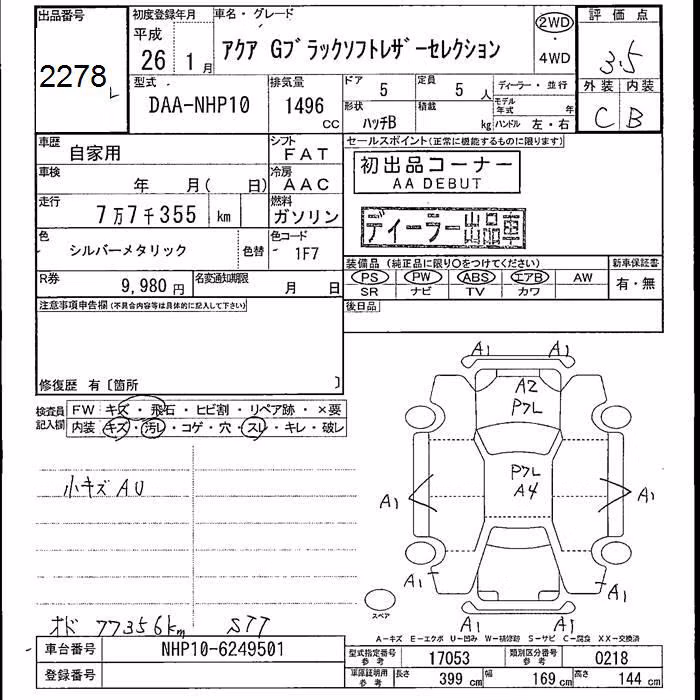 出品番号
2278
初度登録年月
平成
26 1月
車名・グレード
アクア Gブラックソフトレザーセレクション
2WD
4WD
評価点
3.5
外装 内装
C B
型式
DAA-NHP10
排気量
1496
cc
ドア
5
定員
5 人
形状
ハッチB
積載
kg
ディーラー・並行
モデル年式 年
ハンドル 左・右
車歴
自家用
シフト
FAT
車検
年 月( 日)
冷房
AAC
走行
7万7千355 km
燃料
ガソリン
色
シルバーメタリック
色替
色コード
1F7
R券
9,980 円
名変通知期限
月 日
セールスポイント(正常に機能するものに限ります)
初出品コーナー
AA DEBUT
ディーラー出品車
装備品 (純正品に限り○をつけてください)
PS PW ABS エアB AW
SR ナビ TV カワ
新車保証書
有・無
後日品
注意事項申告欄(不具合内容等は具体的に記入して下さい)
修復歴 有〔箇所 〕
検査員記入欄
FW キズ・飛石・ヒビ割・リペア跡・×要
内装 キズ・汚レ・コゲ・穴・スレ・キレ・破レ
小キズAU
オド 77356km STT
A1 A1
A2
PフL
PフL
A4
A1 A1
A1 A1
A1 A1
スペア
A-キズ E-エクボ U-凹み W-補修跡 S-サビ C-腐食 XX-交換済
車台番号
NHP10-6249501
登録番号
型式指定番号 参考
17053
類別区分番号 参考
0218
車庫証明用 参考
長さ 399 cm
幅 169 cm
高さ 144 cm